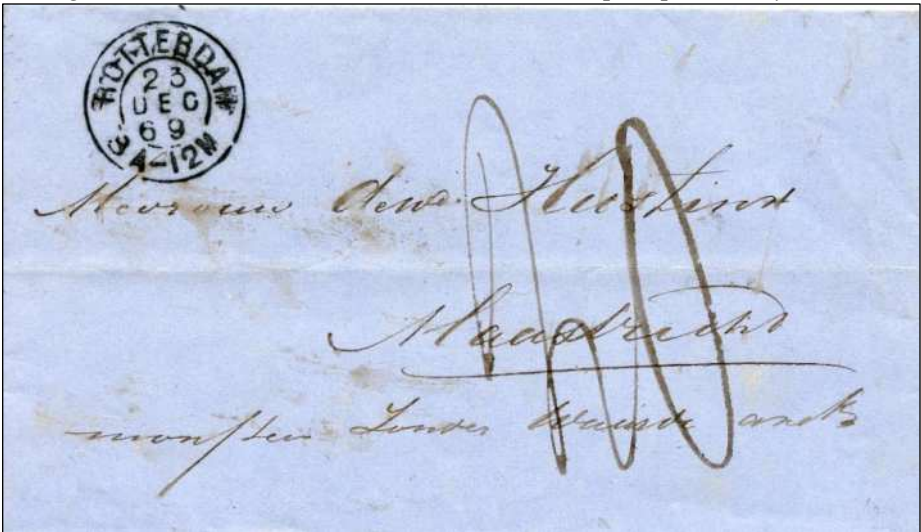 ROTTERDAM
23
DEC
69
8A-12M
Mevrouw dewe. Hustinx
Maastricht
monster zonder waarde